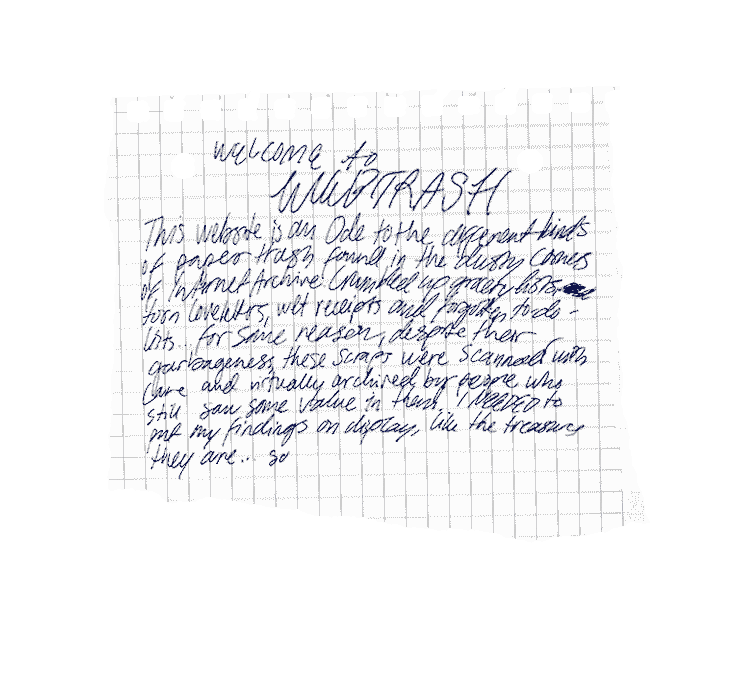 welcome to
WEBTRASH
This website is an Ode to the different kinds
of paper trash found in the dusty corners
of Internet Archive. Crumbled up grocery lists
torn loveletters, wet receipts and forgotten to-do-
lists... for some reason, despite their
garbageness, these scraps were scanned with
care and virtually archived by people who
still saw some value in them. I NEEDED to
put my findings on display, like the treasures
they are... so